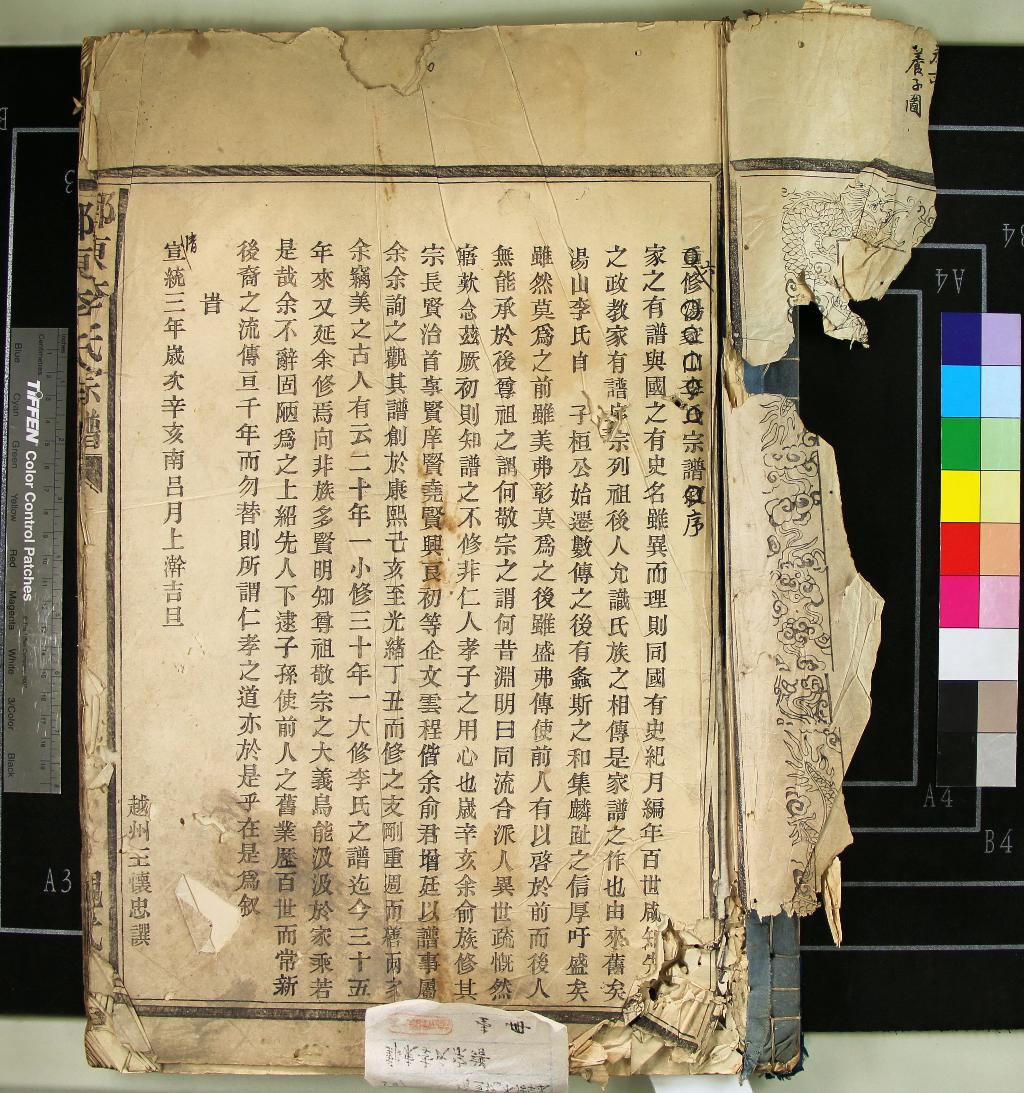 養子圖
重修湯山李氏宗譜序
家之有譜與國之有史名雖異而理則同國有史紀月編年百世咸知
之政教家有譜序宗列祖後人允識氏族之相傳是家譜之作也由來舊矣
湯山李氏自 子桓公始遷數傳之後有螽斯之和集麟趾之信厚吁盛矣
雖然莫爲之前雖美弗彰莫爲之後雖盛弗傳使前人有以啓於前而後人
無能承於後尊祖之謂何敬宗之謂何昔淵明曰同流合派人異世疏慨然
寤歎念茲厥初則知譜之不修非仁人孝子之用心也嵗辛亥余俞族修其
宗長賢治首事賢庠賢堯賢興良初等企文雲程偕余俞君增廷以譜事屬
余余詢之觀其譜創於康熙己亥至光緒丁丑而修之支剛重週而稽兩亥
余竊美之古人有云二十年一小修三十年一大修李氏之譜迄今三十五
年來又延余修焉向非族多賢明知尊祖敬宗之大義烏能汲汲於家乘若
是哉余不辭固陋爲之上紹先人下逮子孫使前人之舊業歷百世而常新
後裔之流傳亘千年而勿替則所謂仁孝之道亦於是乎在是爲叙
旹
清
宣統三年嵗次辛亥南呂月上澣吉旦
越州王懷忠譔
鄞東李氏宗譜
TIFFEN Color Control Patches
Centimetres
Inches
Blue
Cyan
Green
Yellow
Red
Magenta
White
3/Color
Black
A3
A4
B4
A4
B4